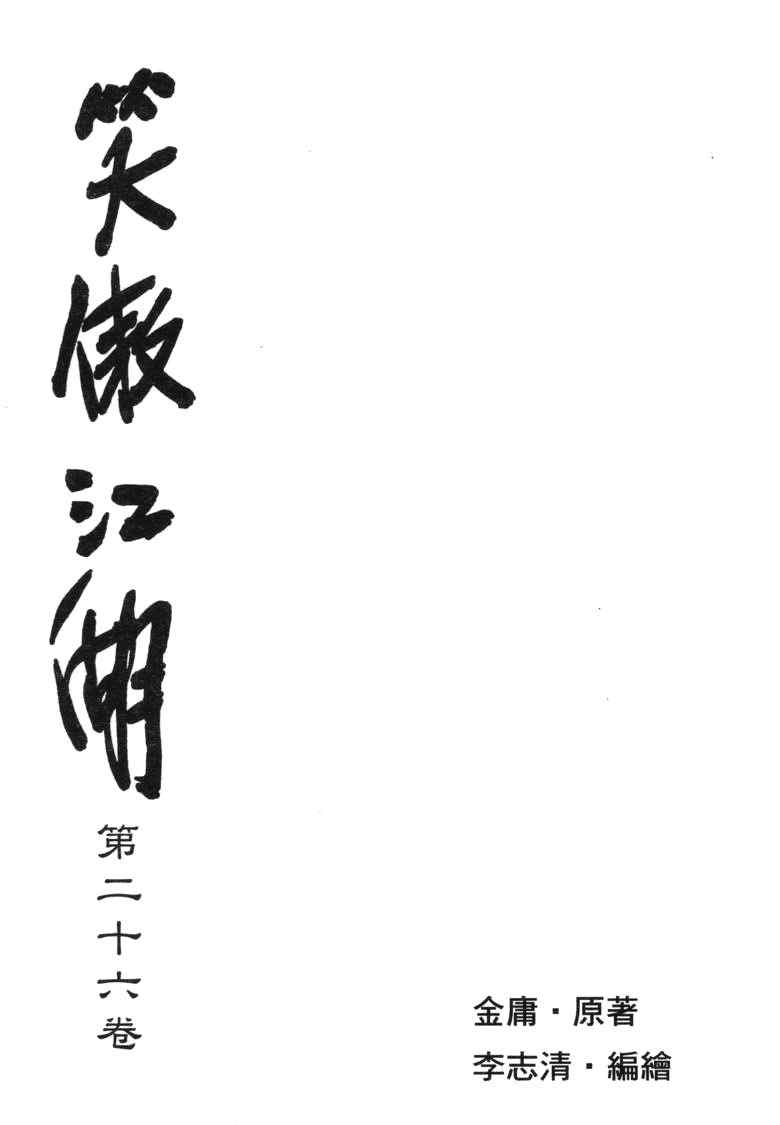 笑傲江湖
第二十六卷
金庸·原著
李志清·編繪